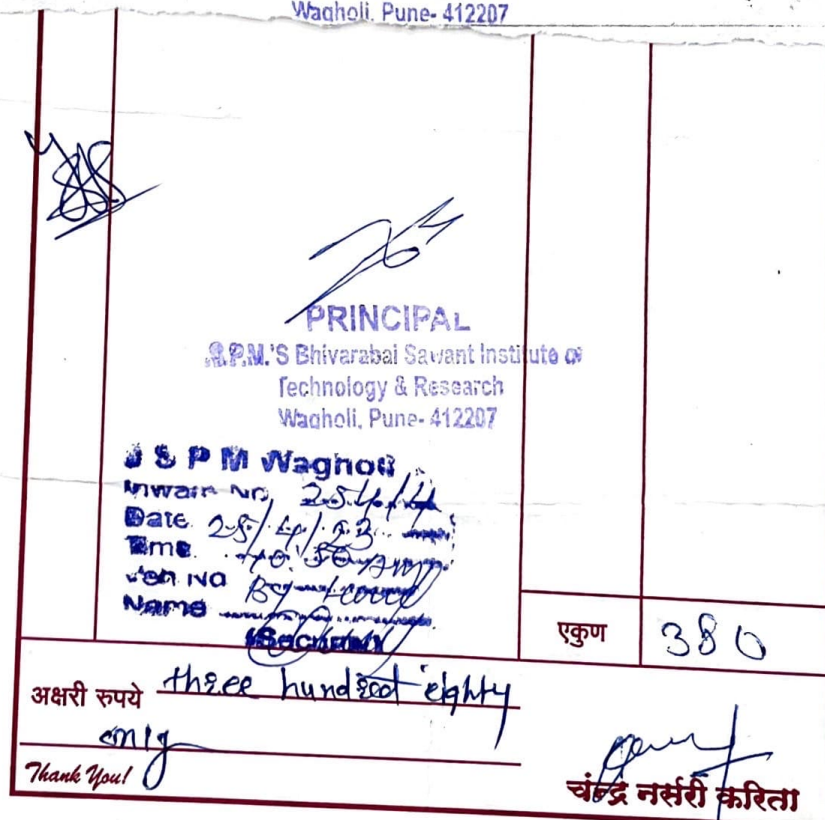 Wagholi, Pune- 412207
PRINCIPAL
S.P.M.'S Bhivarabai Sawant Institute of
Technology & Research
Wagholi, Pune- 412207
J S P M Wagholi
Inward No. 254/4
Date 25/4/23
Time 10.50 AM
Veh No By Hand
Name
(Security)
एकुण 380
अक्षरी रुपये three hundred eighty
only
Thank You!
चंन्द्र नर्सरी करिता